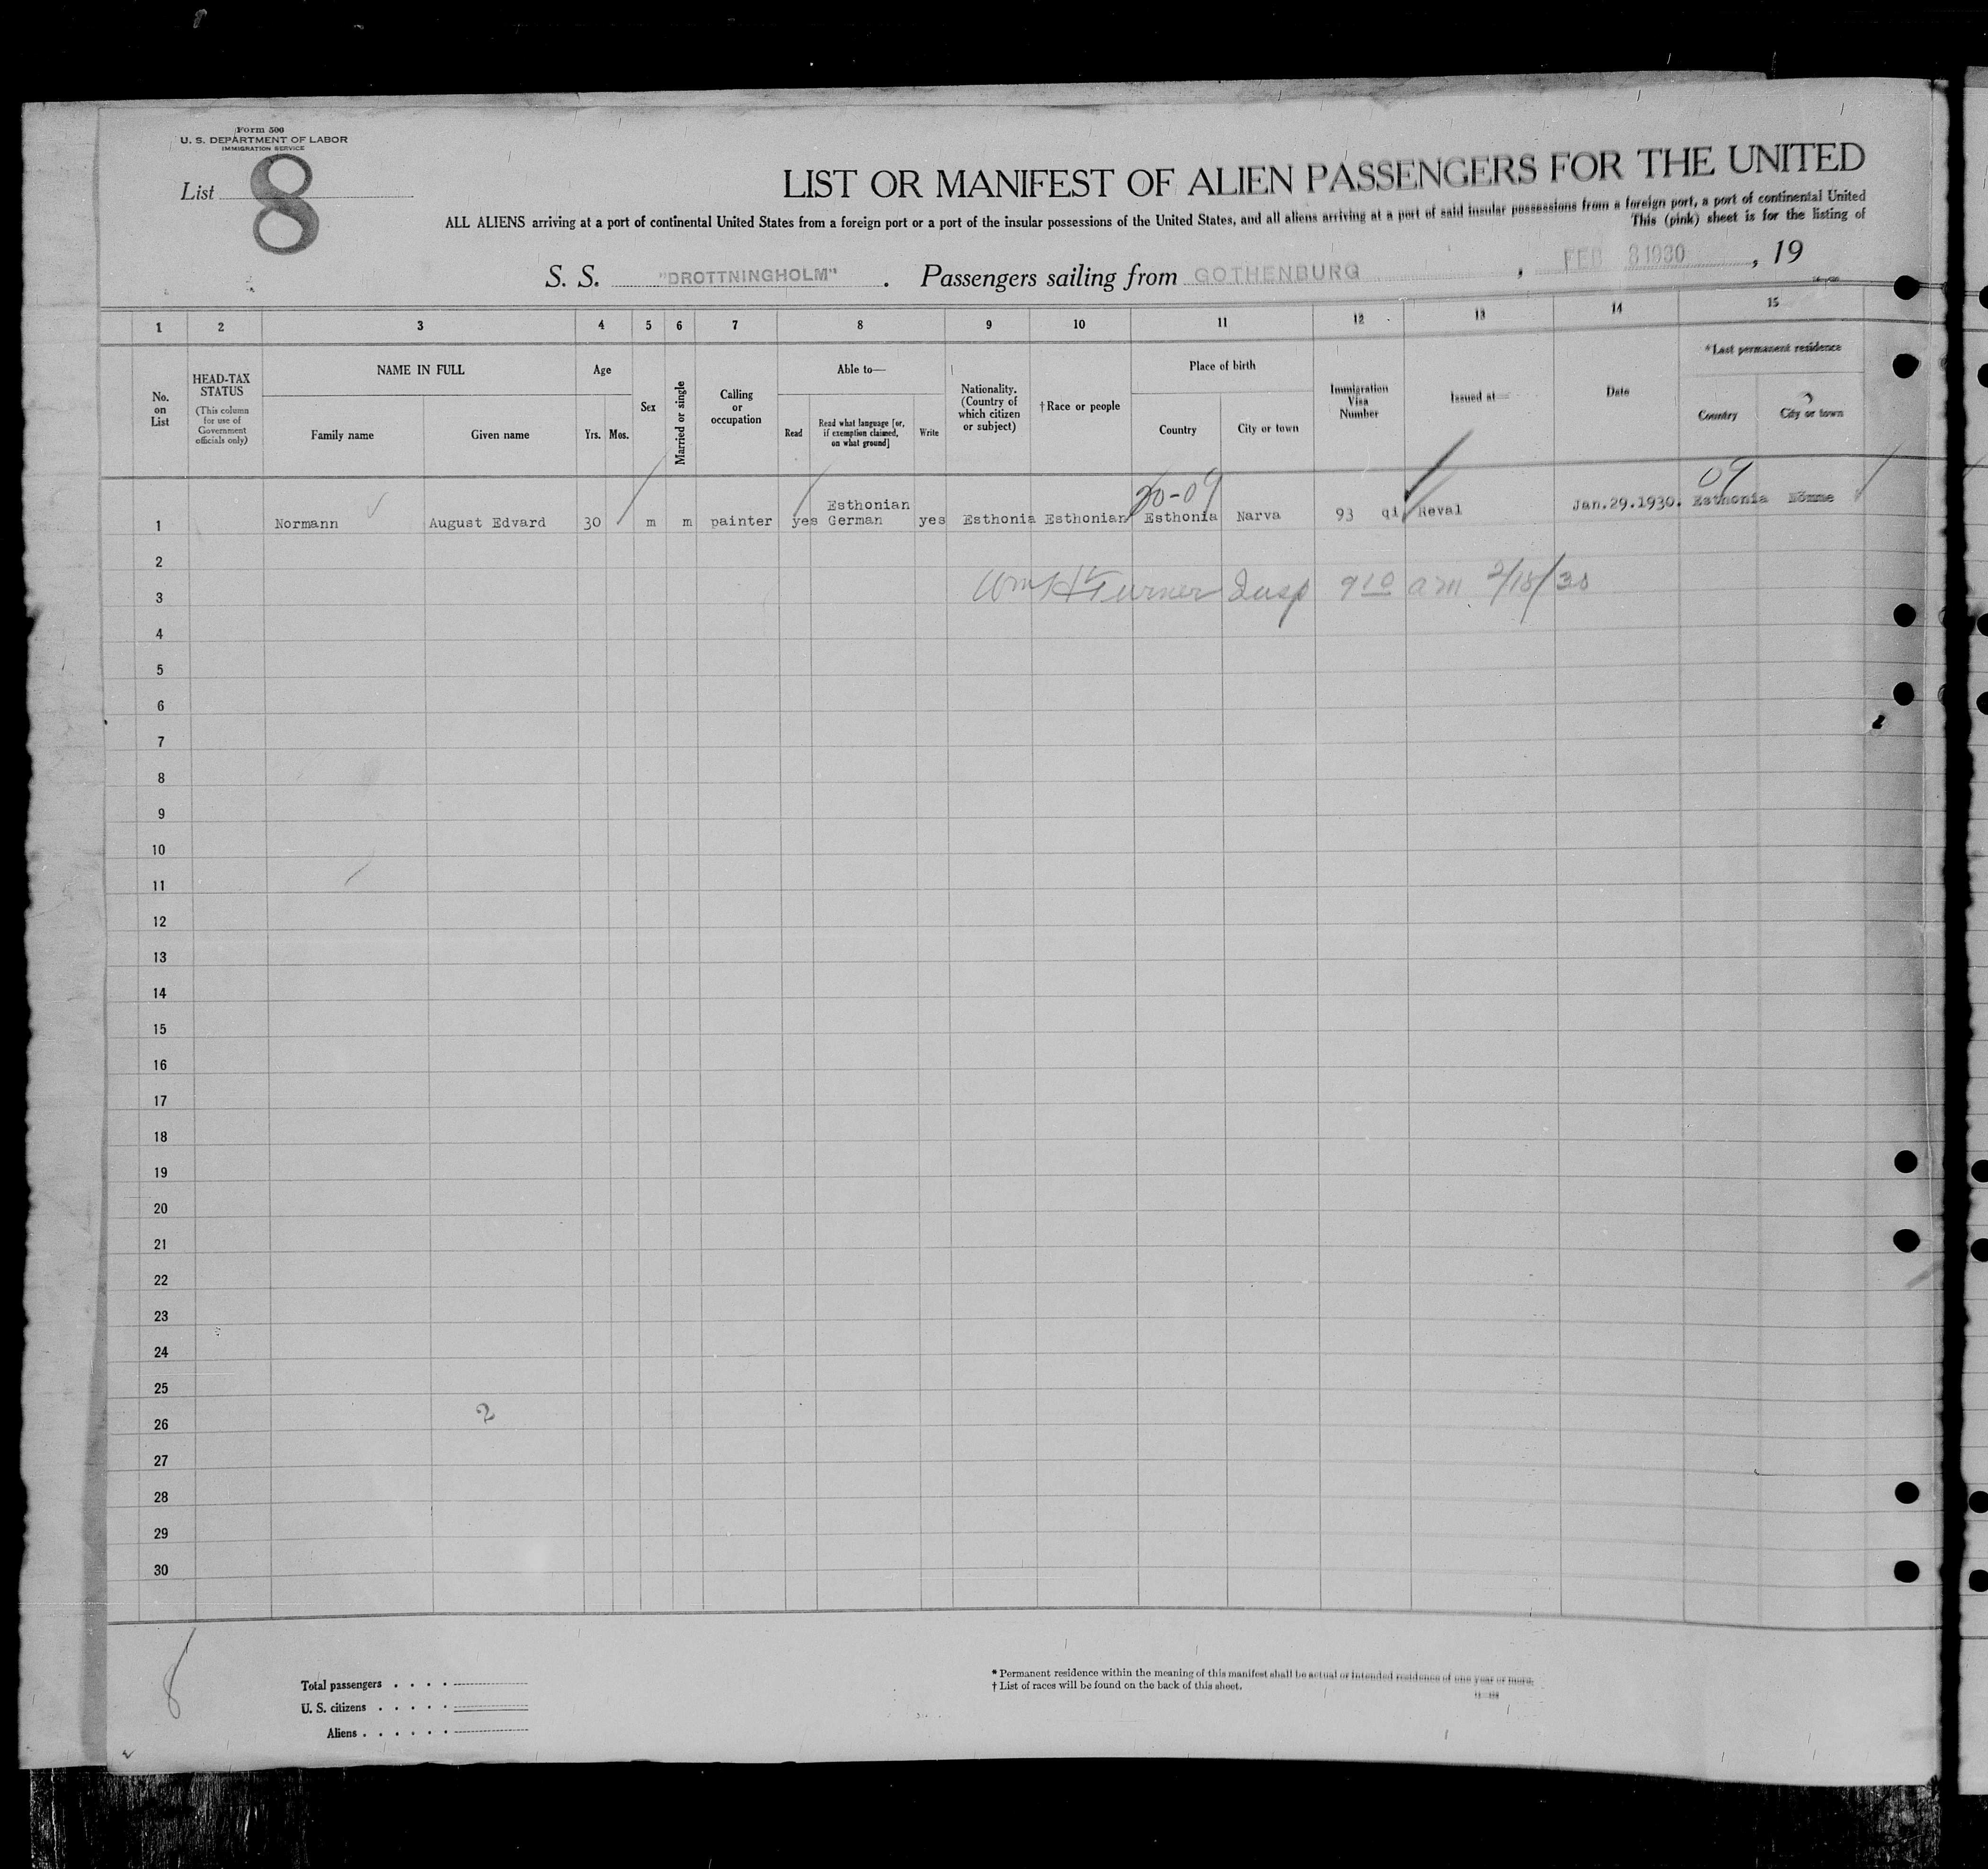 Form 500
U. S. DEPARTMENT OF LABOR
IMMIGRATION SERVICE
List 8
LIST OR MANIFEST OF ALIEN PASSENGERS FOR THE UNITED
ALL ALIENS arriving at a port of continental United States from a foreign port or a port of the insular possessions of the United States, and all aliens arriving at a port of said insular possessions from a foreign port, a port of continental United
This (pink) sheet is for the listing of
S. S. "DROTTNINGHOLM" . Passengers sailing from GOTHENBURG , FEB 8 1930 , 19
1 2 3 4 5 6 7 8 9 10 11 12 13 14 15
No. on List
HEAD-TAX STATUS
(This column for use of Government officials only)
NAME IN FULL
Family name
Given name
Age
Yrs. Mos.
Sex
Married or single
Calling or occupation
Able to—
Read
Read what language [or, if exemption claimed, on what ground]
Write
Nationality. (Country of which citizen or subject)
† Race or people
Place of birth
Country
City or town
Immigration Visa Number
Issued at—
Date
* Last permanent residence
Country
City or town
20-09
09
1 Normann August Edvard 30 m m painter yes Esthonian German yes Esthonia Esthonian Esthonia Narva 93 qi Reval Jan.29.1930. Esthonia Nömme
Wm H Turner Insp 9 10 am 2/18/30
2
3
4
5
6
7
8
9
10
11
12
13
14
15
16
17
18
19
20
21
22
23
24
25
2
26
27
28
29
30
8
Total passengers
U. S. citizens
Aliens
* Permanent residence within the meaning of this manifest shall be actual or intended residence of one year or more.
† List of races will be found on the back of this sheet.